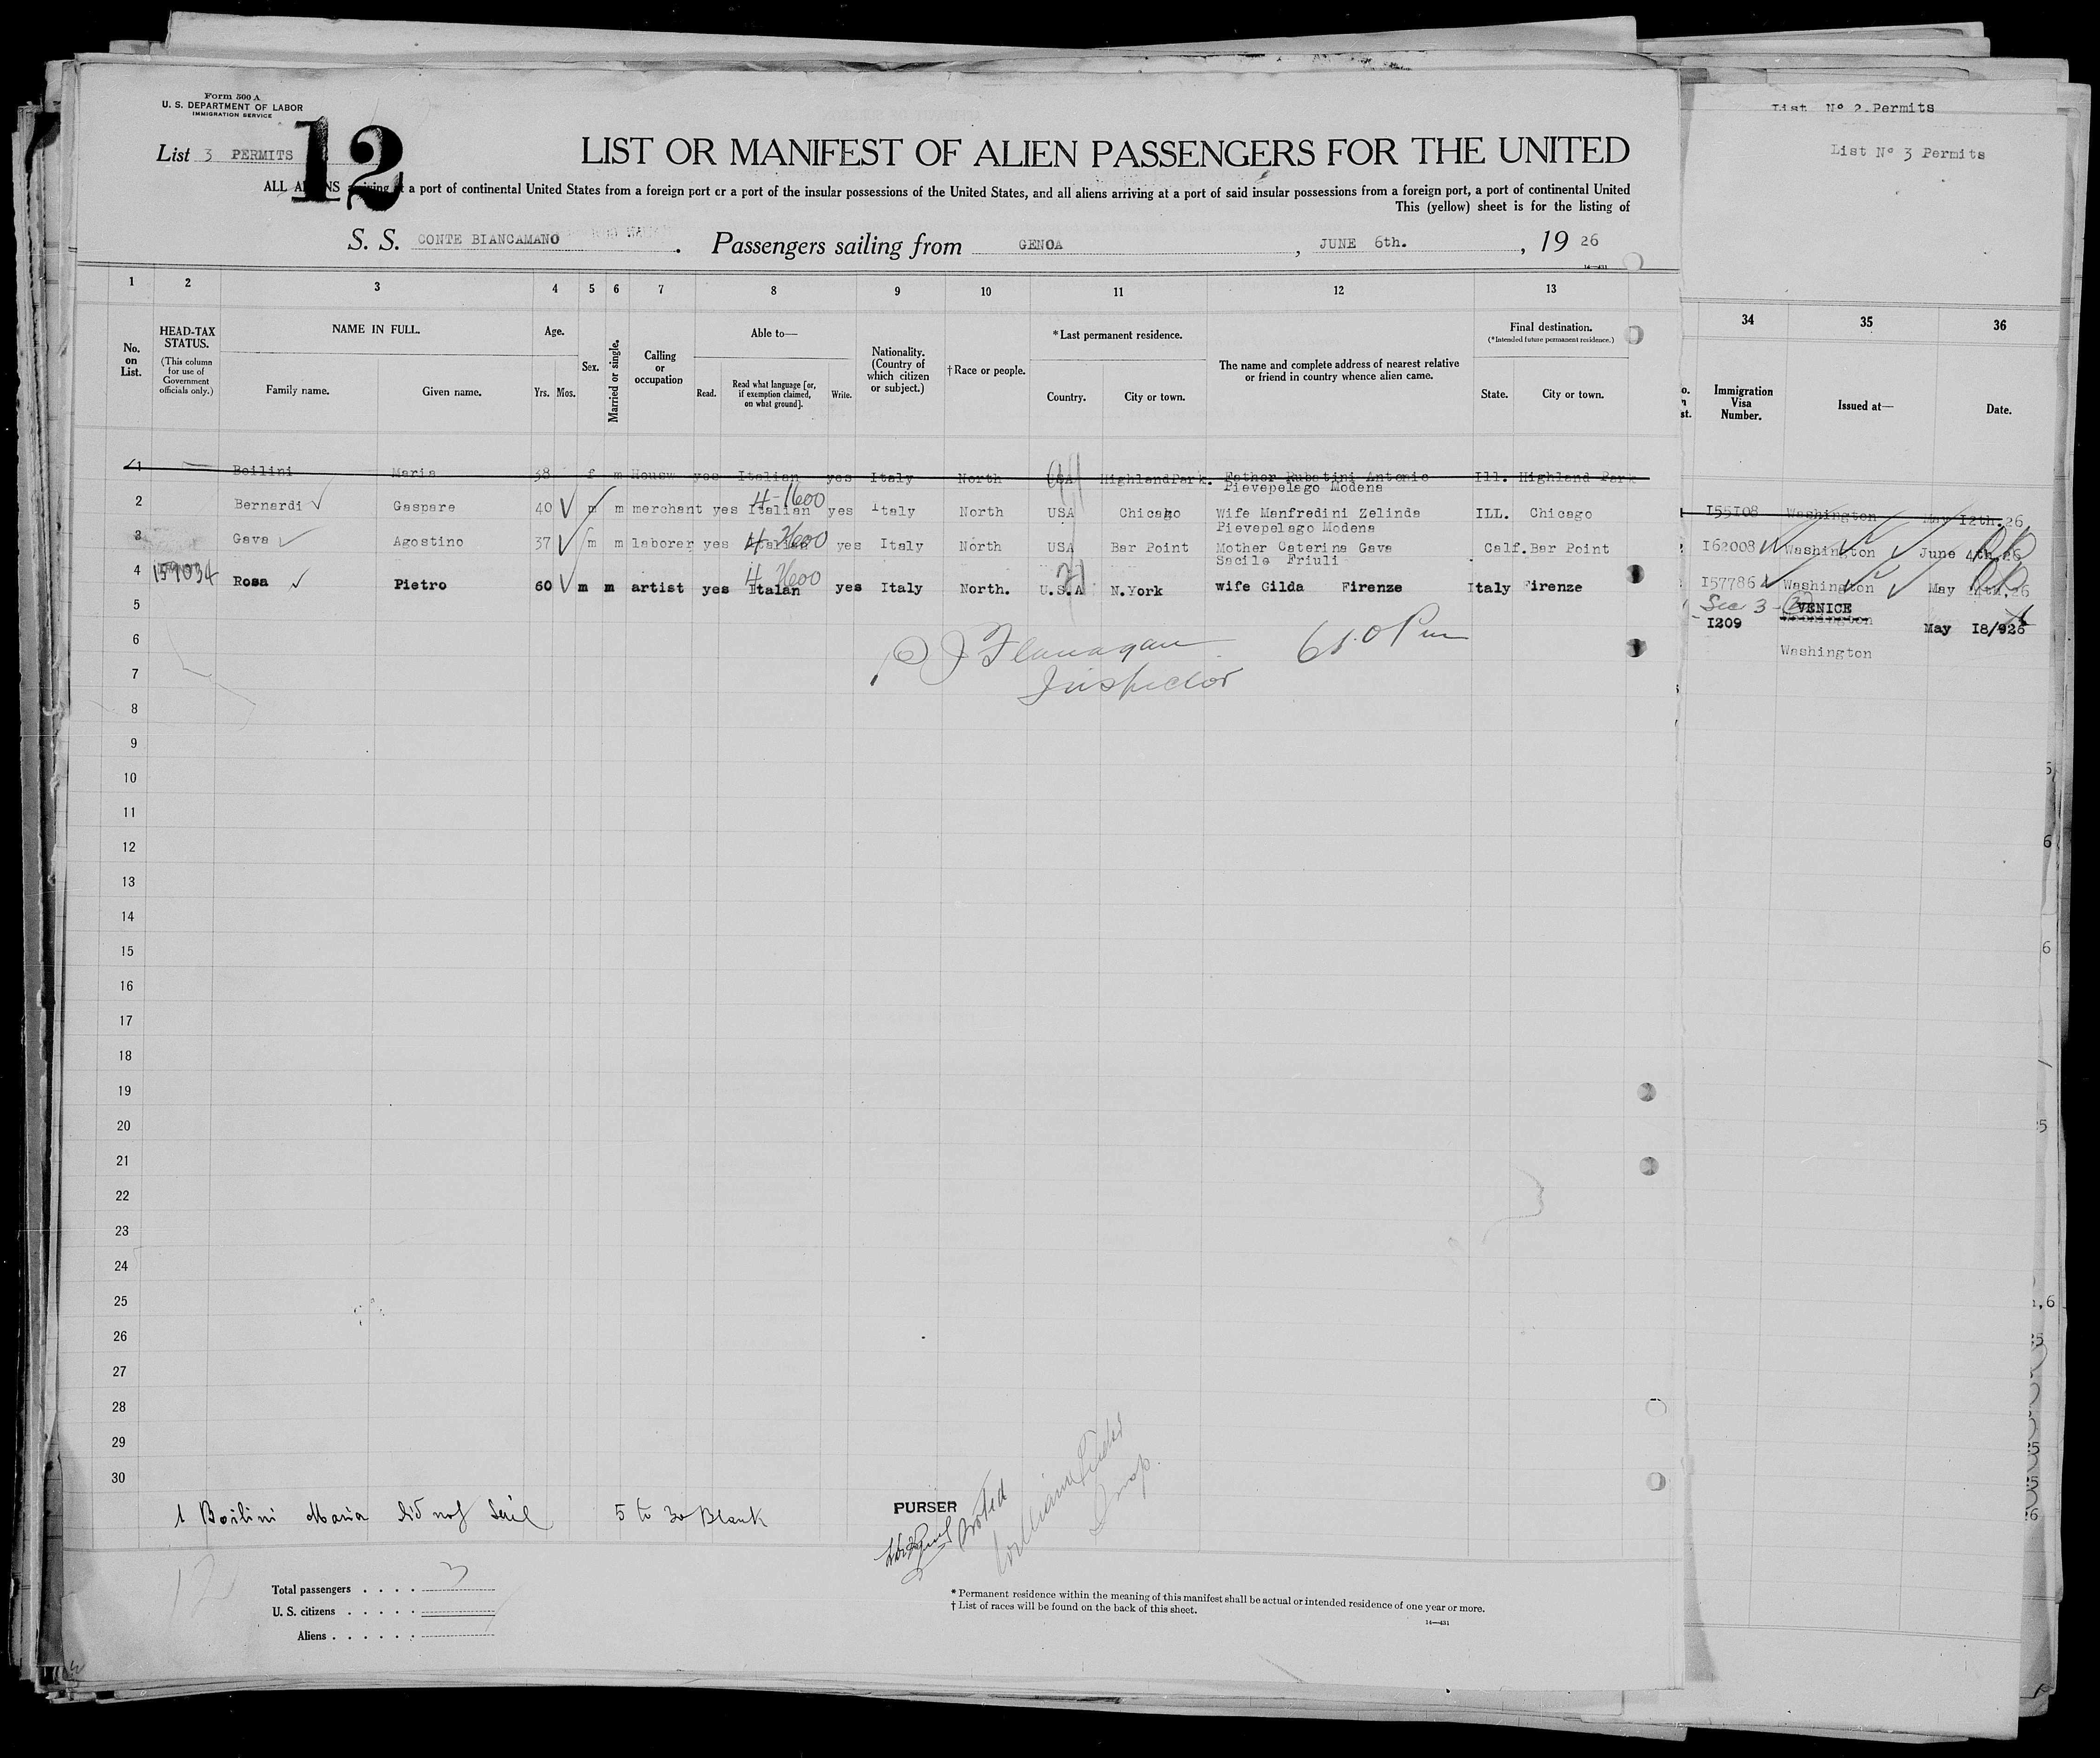 Form 500 A
U. S. DEPARTMENT OF LABOR
IMMIGRATION SERVICE
12
List 3 PERMITS
LIST OR MANIFEST OF ALIEN PASSENGERS FOR THE UNITED
ALL ALIENS arriving at a port of continental United States from a foreign port or a port of the insular possessions of the United States, and all aliens arriving at a port of said insular possessions from a foreign port, a port of continental United
This (yellow) sheet is for the listing of
S. S. CONTE BIANCAMANO. Passengers sailing from GENOA, JUNE 6th., 19 26
14—431
1 2 3 4 5 6 7 8 9 10 11 12 13
No. on List.
HEAD-TAX STATUS.
(This column for use of Government officials only.)
NAME IN FULL.
Family name. Given name.
Age.
Yrs. Mos.
Sex.
Married or single.
Calling or occupation
Able to—
Read. Read what language [or, if exemption claimed, on what ground]. Write.
Nationality. (Country of which citizen or subject.)
† Race or people.
*Last permanent residence.
Country. City or town.
The name and complete address of nearest relative or friend in country whence alien came.
Final destination.
(*Intended future permanent residence.)
State. City or town.
1 Boilini Maria 38 f m Housw yes Italian yes Italy North USA HighlandPark. Father Rubatini Antonio Ill. Highland Park
Pievepelago Modena
4-1600
2 Bernardi Gaspare 40 m m merchant yes Italian yes Italy North USA Chicago Wife Manfredini Zelinda ILL. Chicago
Pievepelago Modena
4 2600
3 Gava Agostino 37 m m laborer yes Italian yes Italy North USA Bar Point Mother Caterina Gava Calf. Bar Point
Sacile Friuli
4 2600
4 Rosa Pietro 60 m m artist yes Italan yes Italy North. U.S.A N.York wife Gilda Firenze Italy Firenze
5
6
7
8
9
10
11
12
13
14
15
16
17
18
19
20
21
22
23
24
25
26
27
28
29
30
Flanagan
Inspector
1 Boilini Maria did not sail 5 to 30 Blank
PURSER
12
Total passengers . . . . 3
U. S. citizens . . . . .
Aliens . . . . . .
* Permanent residence within the meaning of this manifest shall be actual or intended residence of one year or more.
† List of races will be found on the back of this sheet.
14—431
List Nº 2 Permits
List Nº 3 Permits
34 35 36
Immigration Visa Number.
Issued at—
Date.
I55I08 Washington May I2th.26
I62008 Washington June 4th,26
I57786 Washington May 24th,26
Sec 3 - (2) VENICE
Washington
I209 May I8/926
Washington